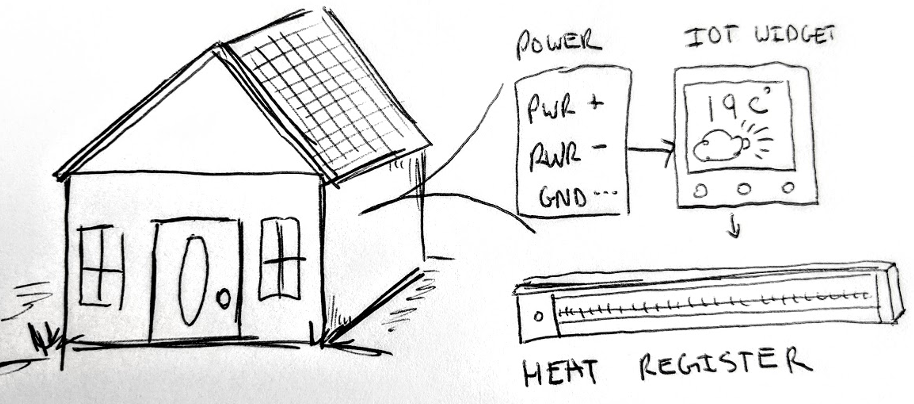 POWER
IOT WIDGET
PWR +
PWR -
GND ...
19 C°
HEAT REGISTER